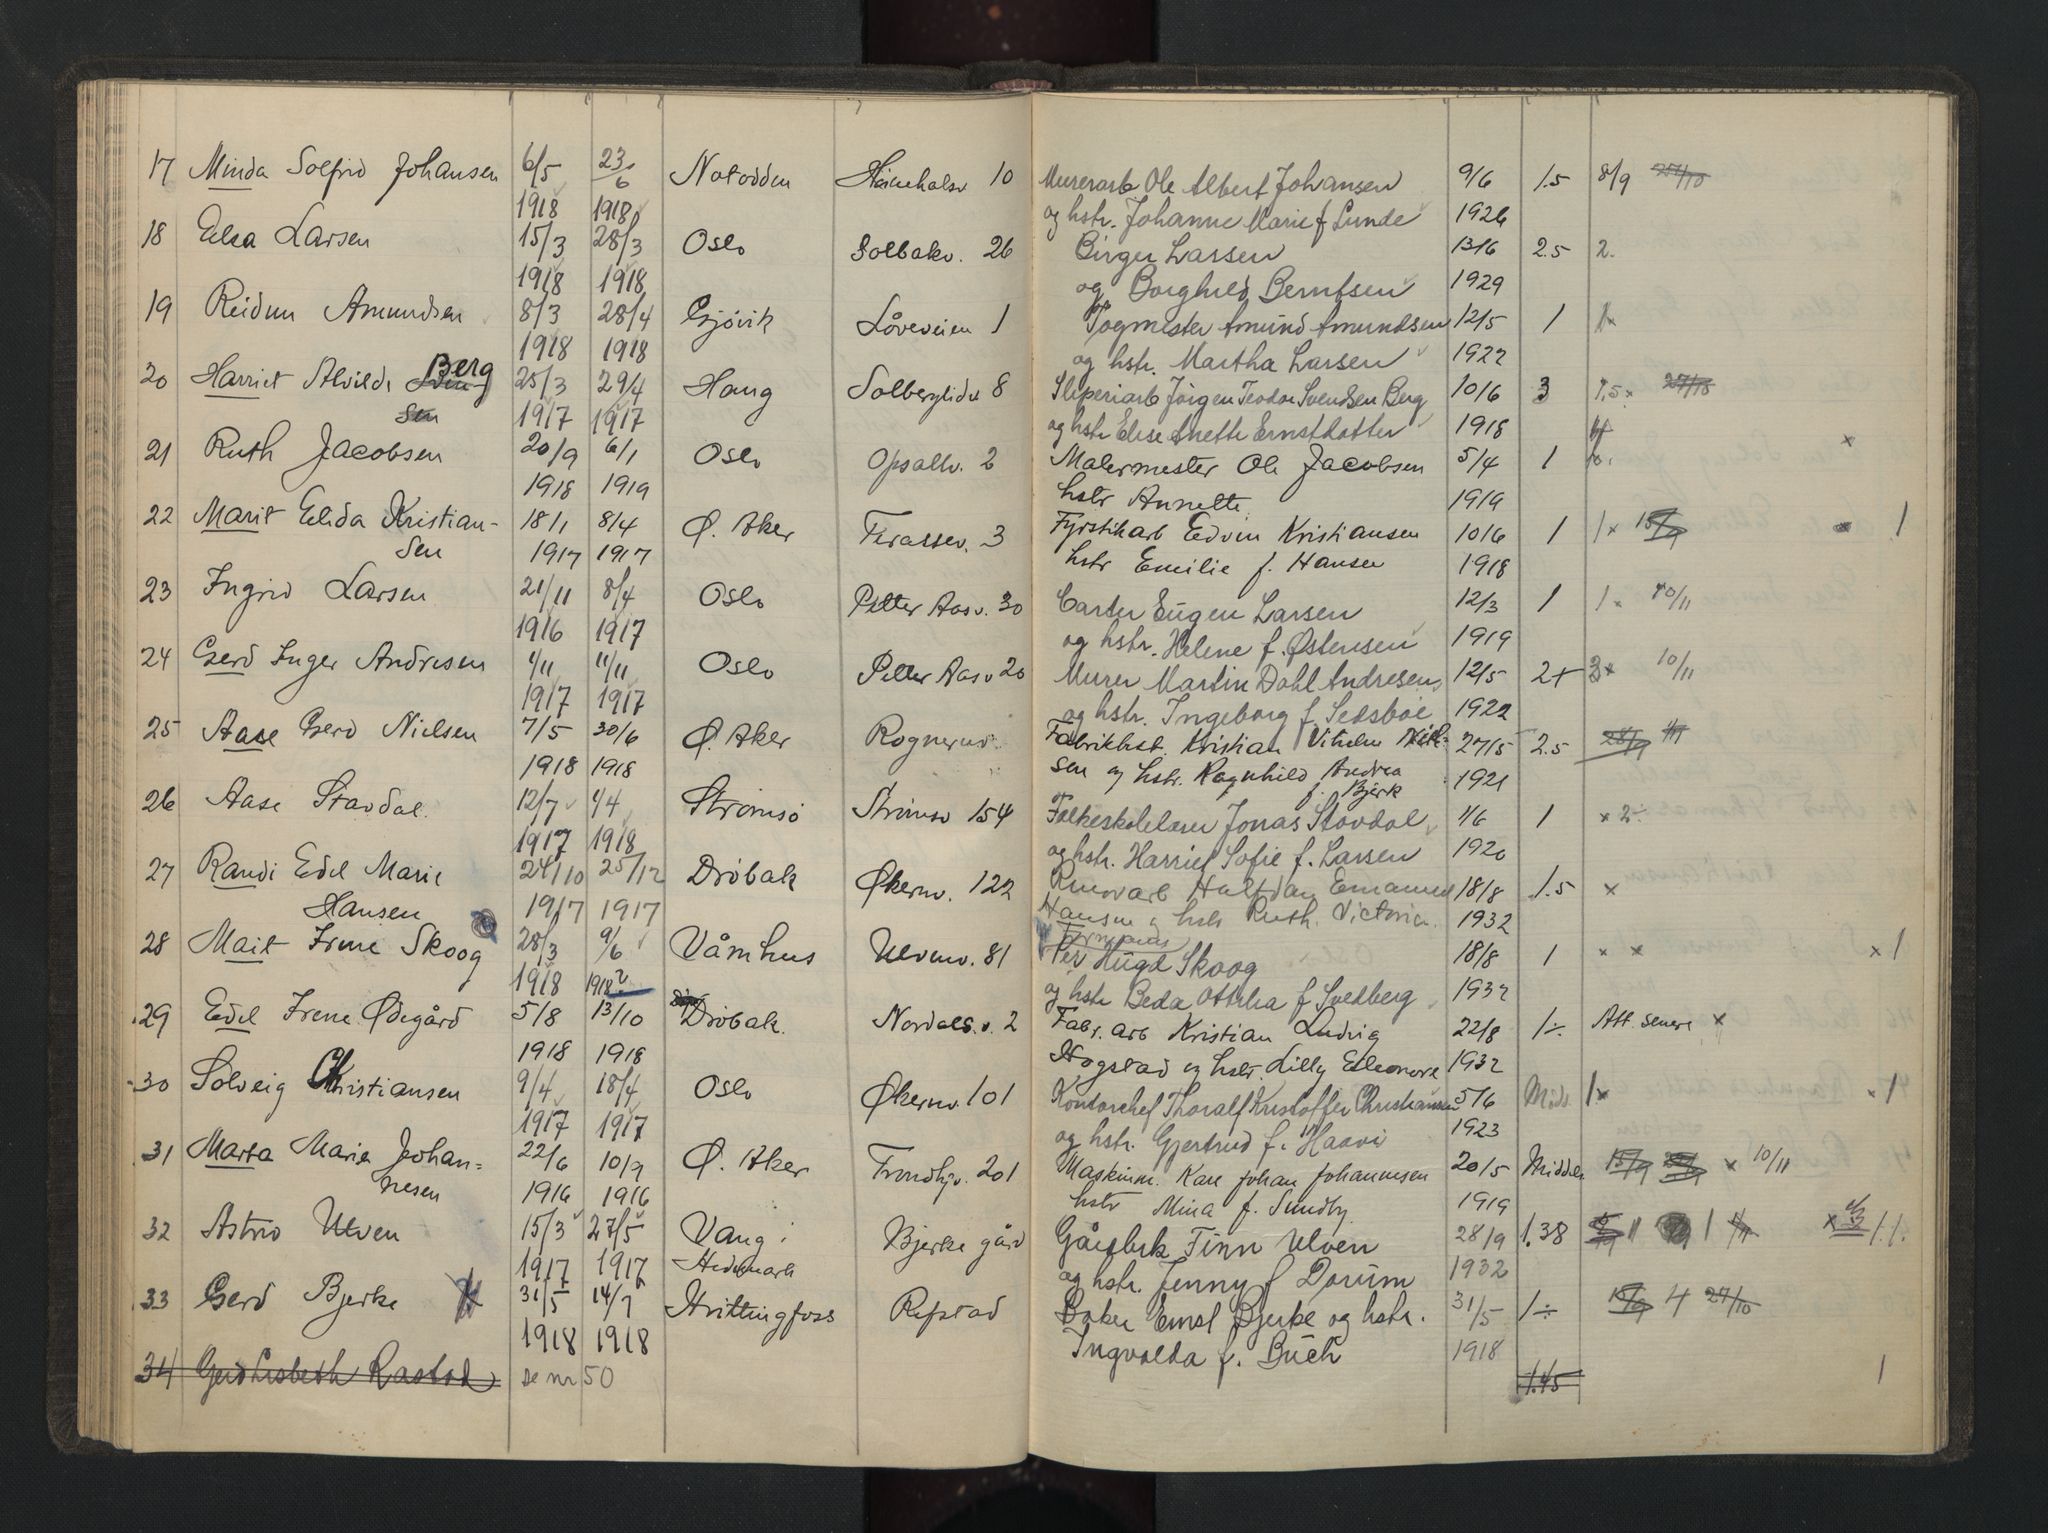 17 Minda Solfrid Johansen 6/5 23/6 Notodden 10 Murerarb Ole Albert Johansen 9/6 1.5 8/9
1918 1918 og hstr. Johanne Marie f Lunde 1926
18 Elsa Larsen 15/3 28/3 Oslo Solbakv. 26 Birger Larsen 13/6 2.5 2.
1918 1918 og Borghild Berntsen 1929
19 Reidun Amundsen 8/3 28/4 Gjövik Löveveien 1 Togmester Amund Amundsen 12/5 1
1918 1918 og hstr. Martha Larsen 1922
20 Harriet Alvilde Berg 25/3 29/4 Haug Solberglidv 8 Sliperiarb Jörgen Teodor Svendsen Berg 10/6 3 1,5x 27/10
sen 1917 1917 og hstr Elise Anette Ernstdatter 1918
21 Ruth Jacobsen 20/9 6/1 Oslo Opsalv. 2 Malermester Ole Jacobsen 5/4 1 x
1918 1919 hstr Annette 1919
22 Marit Elida Kristian- 18/1 8/4 Ø. Aker Terassev. 3 Fyrstikarb Edvin Kristiansen 10/6 1 1x 15/9 x 1
sen 1917 1917 hstr Emilie f. Hansen 1918
23 Ingrid Larsen 21/11 8/4 Oslo Petter Aasv. 30 Carter Eugen Larsen 12/3 1 1x 10/11
1916 1917 og hstr. Helene f. Østensen 1919
24 Gerd Inger Andresen 4/11 11/11 Oslo Petter Aasv 20 Murer Martin Dahl Andresen 12/5 2+ 10/11
1917 1917 og hstr. Ingeborg f. 1922
25 Aase Gerd Nielsen 7/5 30/6 Ø. Aker Rognerud Fabrikbest. Kristian Vilhelm Niel- 27/5 2.5 28/9
1918 1918 sen og hstr. Ragnhild Andrea 1921
f. Bjerk
26 Aase Stavdal 12/7 4/4 Strömsö Strömsv 154 Folkeskolelærer Jonas Stavdal 1/6 1 x 2÷
1917 1918 og hstr. Harriet Sofie f. Larsen 1920
27 Randi Edel Marie 24/10 25/12 Dröbak Økernv. 122 Halfdan Emanuel 18/8 1.5 x
Hansen 1917 1917 Hansen og hstr Ruth Victoria 1932
28 Mait Irene Skoog 28/3 9/6 Våmhus Ulvenv. 81 Per Hugo Skoog 18/8 1 x x x 1
1918 1918? og hstr Beda Ottilia f Svedberg 1932
29 Edel Irene Ødegård 5/8 13/10 Dröbak Nordalsv. 2 Fabr. arb Kristian Ludvig 22/8 1÷ Att. senere x
1918 1918 Hogstad og hstr. Lilly Elleonore 1932
30 Solveig Christiansen 9/4 18/4 Oslo Økernv. 101 Kontorchef Thoralf Kristoffer Christiansen 5/6 Midd. 1x x 1
1917 1917 og hstr. Gjertrud f. Haavi 1923
31 Marta Marie Johan= 22/6 10/9 Ø. Aker Trondhjv. 201 Maskinm. Karl Johan Johannesen 20/5 Middels 15/9 x 10/11
nesen 1916 1916 hstr Mina f. Sundby 1919
32 Astrid Ulven 15/3 27/5 Vang i Bjerke gård Gårdbrk Finn Ulven 28/9 1.38
1917 1917 Hedemark og hstr. Jenny f Dorum 1932
33 Gerd Bjerke 31/5 14/7 Hvittingfoss Refstad Baker Emil Bjerke og hstr. 31/5 1÷ 15/9 4 27/10
1918 1918 Ingvalda f. Buch 1918
34 Gerd Lisbeth Rastad se nr 50 1.45 1